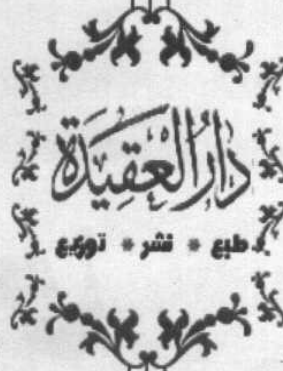 دَارُ العَقِيدَة
طبع * نشر * توزيع